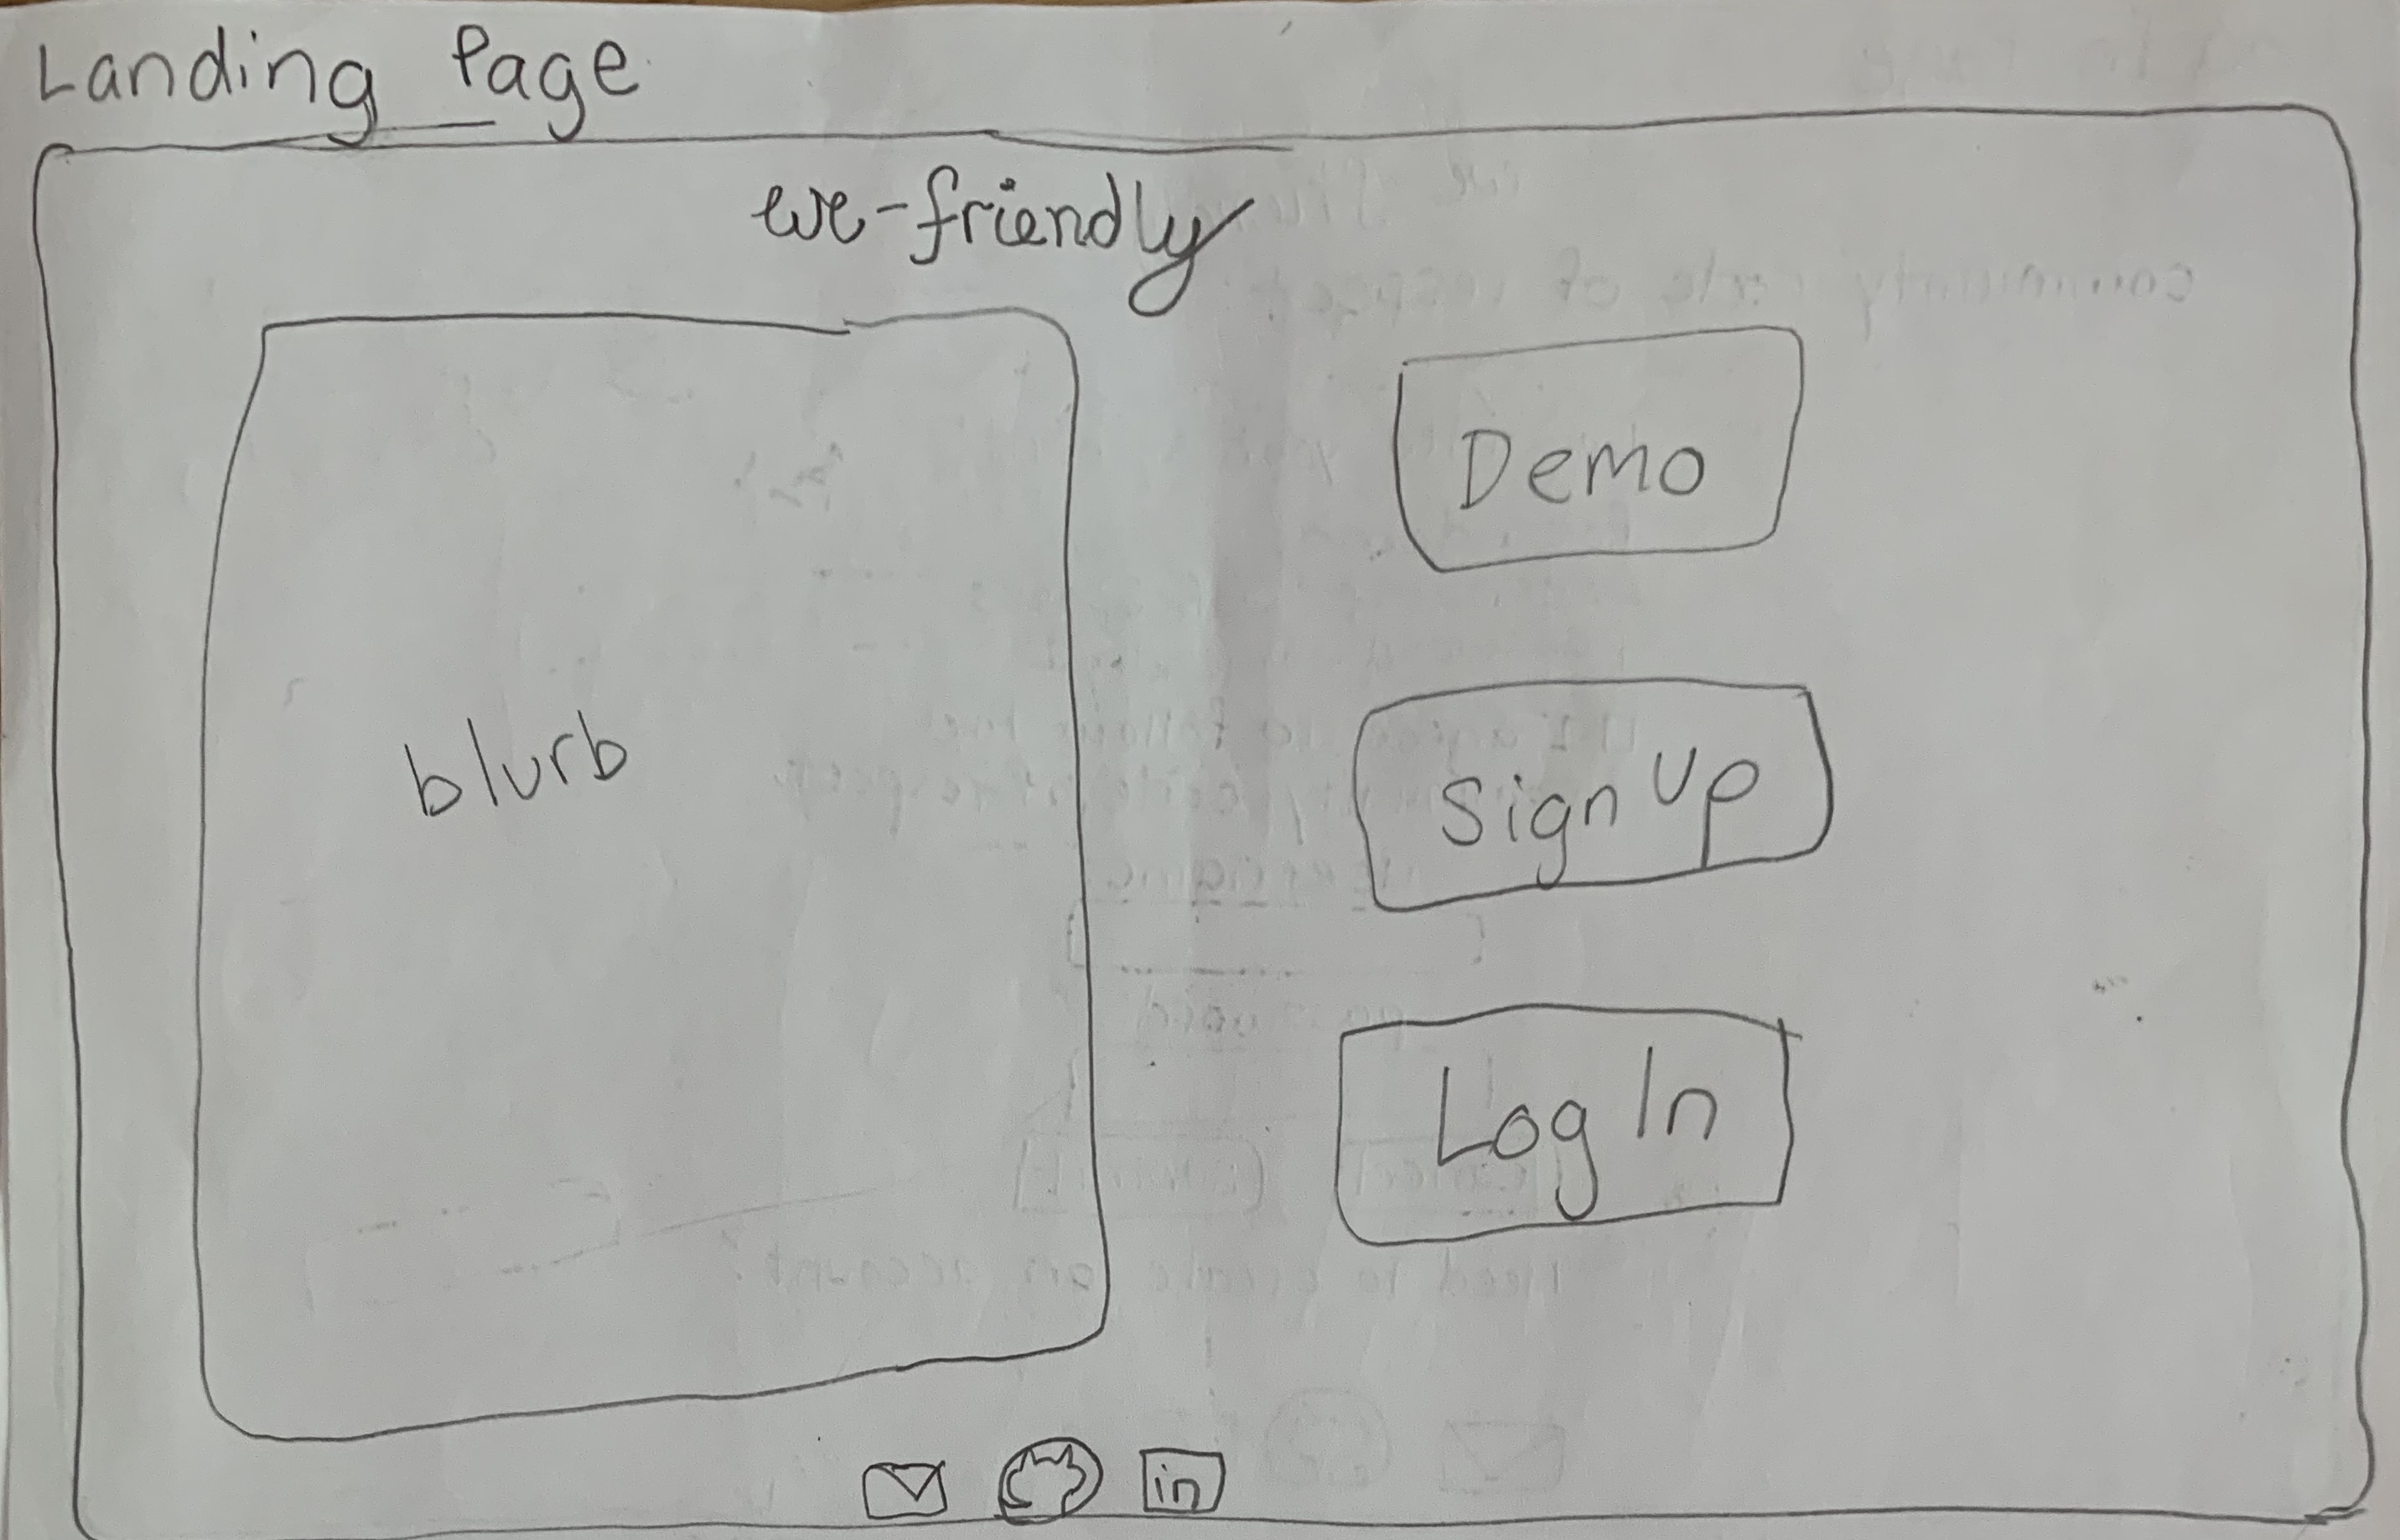 Landing Page
we-friendly
Demo
blurb
Sign Up
Log In
in